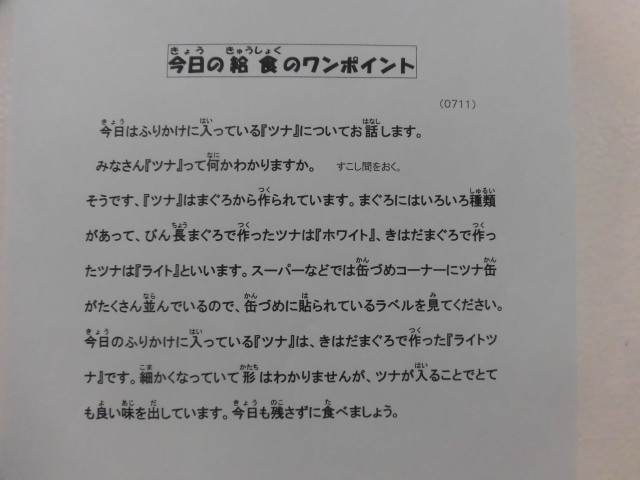 きょう きゅうしょく
今日の給食のワンポイント
（0711）
きょう はい はなし
今日はふりかけに入っている『ツナ』についてお話します。
なに
みなさん『ツナ』って何かわかりますか。 すこし間をおく。
つく しゅるい
そうです、『ツナ』はまぐろから作られています。まぐろにはいろいろ種類
ちょう つく つく
があって、びん長まぐろで作ったツナは『ホワイト』、きはだまぐろで作っ
かん かん
たツナは『ライト』といいます。スーパーなどでは缶づめコーナーにツナ缶
なら かん は み
がたくさん並んでいるので、缶づめに貼られているラベルを見てください。
きょう はい つく
今日のふりかけに入っている『ツナ』は、きはだまぐろで作った『ライトツ
こま かたち はい
ナ』です。細かくなっていて形はわかりませんが、ツナが入ることでとて
よ あじ だ きょう のこ た
も良い味を出しています。今日も残さずに食べましょう。